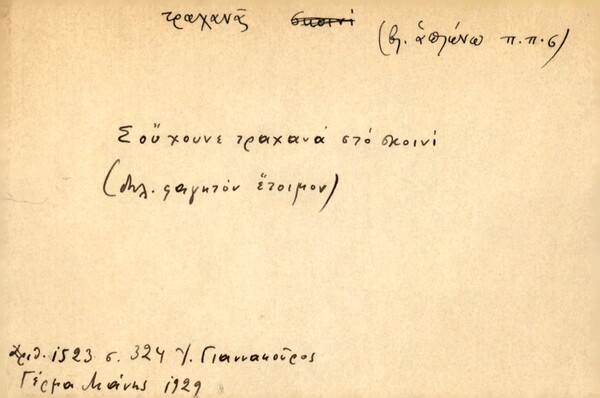 τραχανᾶς σκοινί
(βλ. ἁπλώνω π.π.σ)
Σοὔχουνε τραχανά στό σκοινί
(δηλ. φαγητόν ἕτοιμον)
Ἀριθ. 1523 σ. 324 Γ. Γιαννακοῦρος
Γέρμα Μάνης 1929